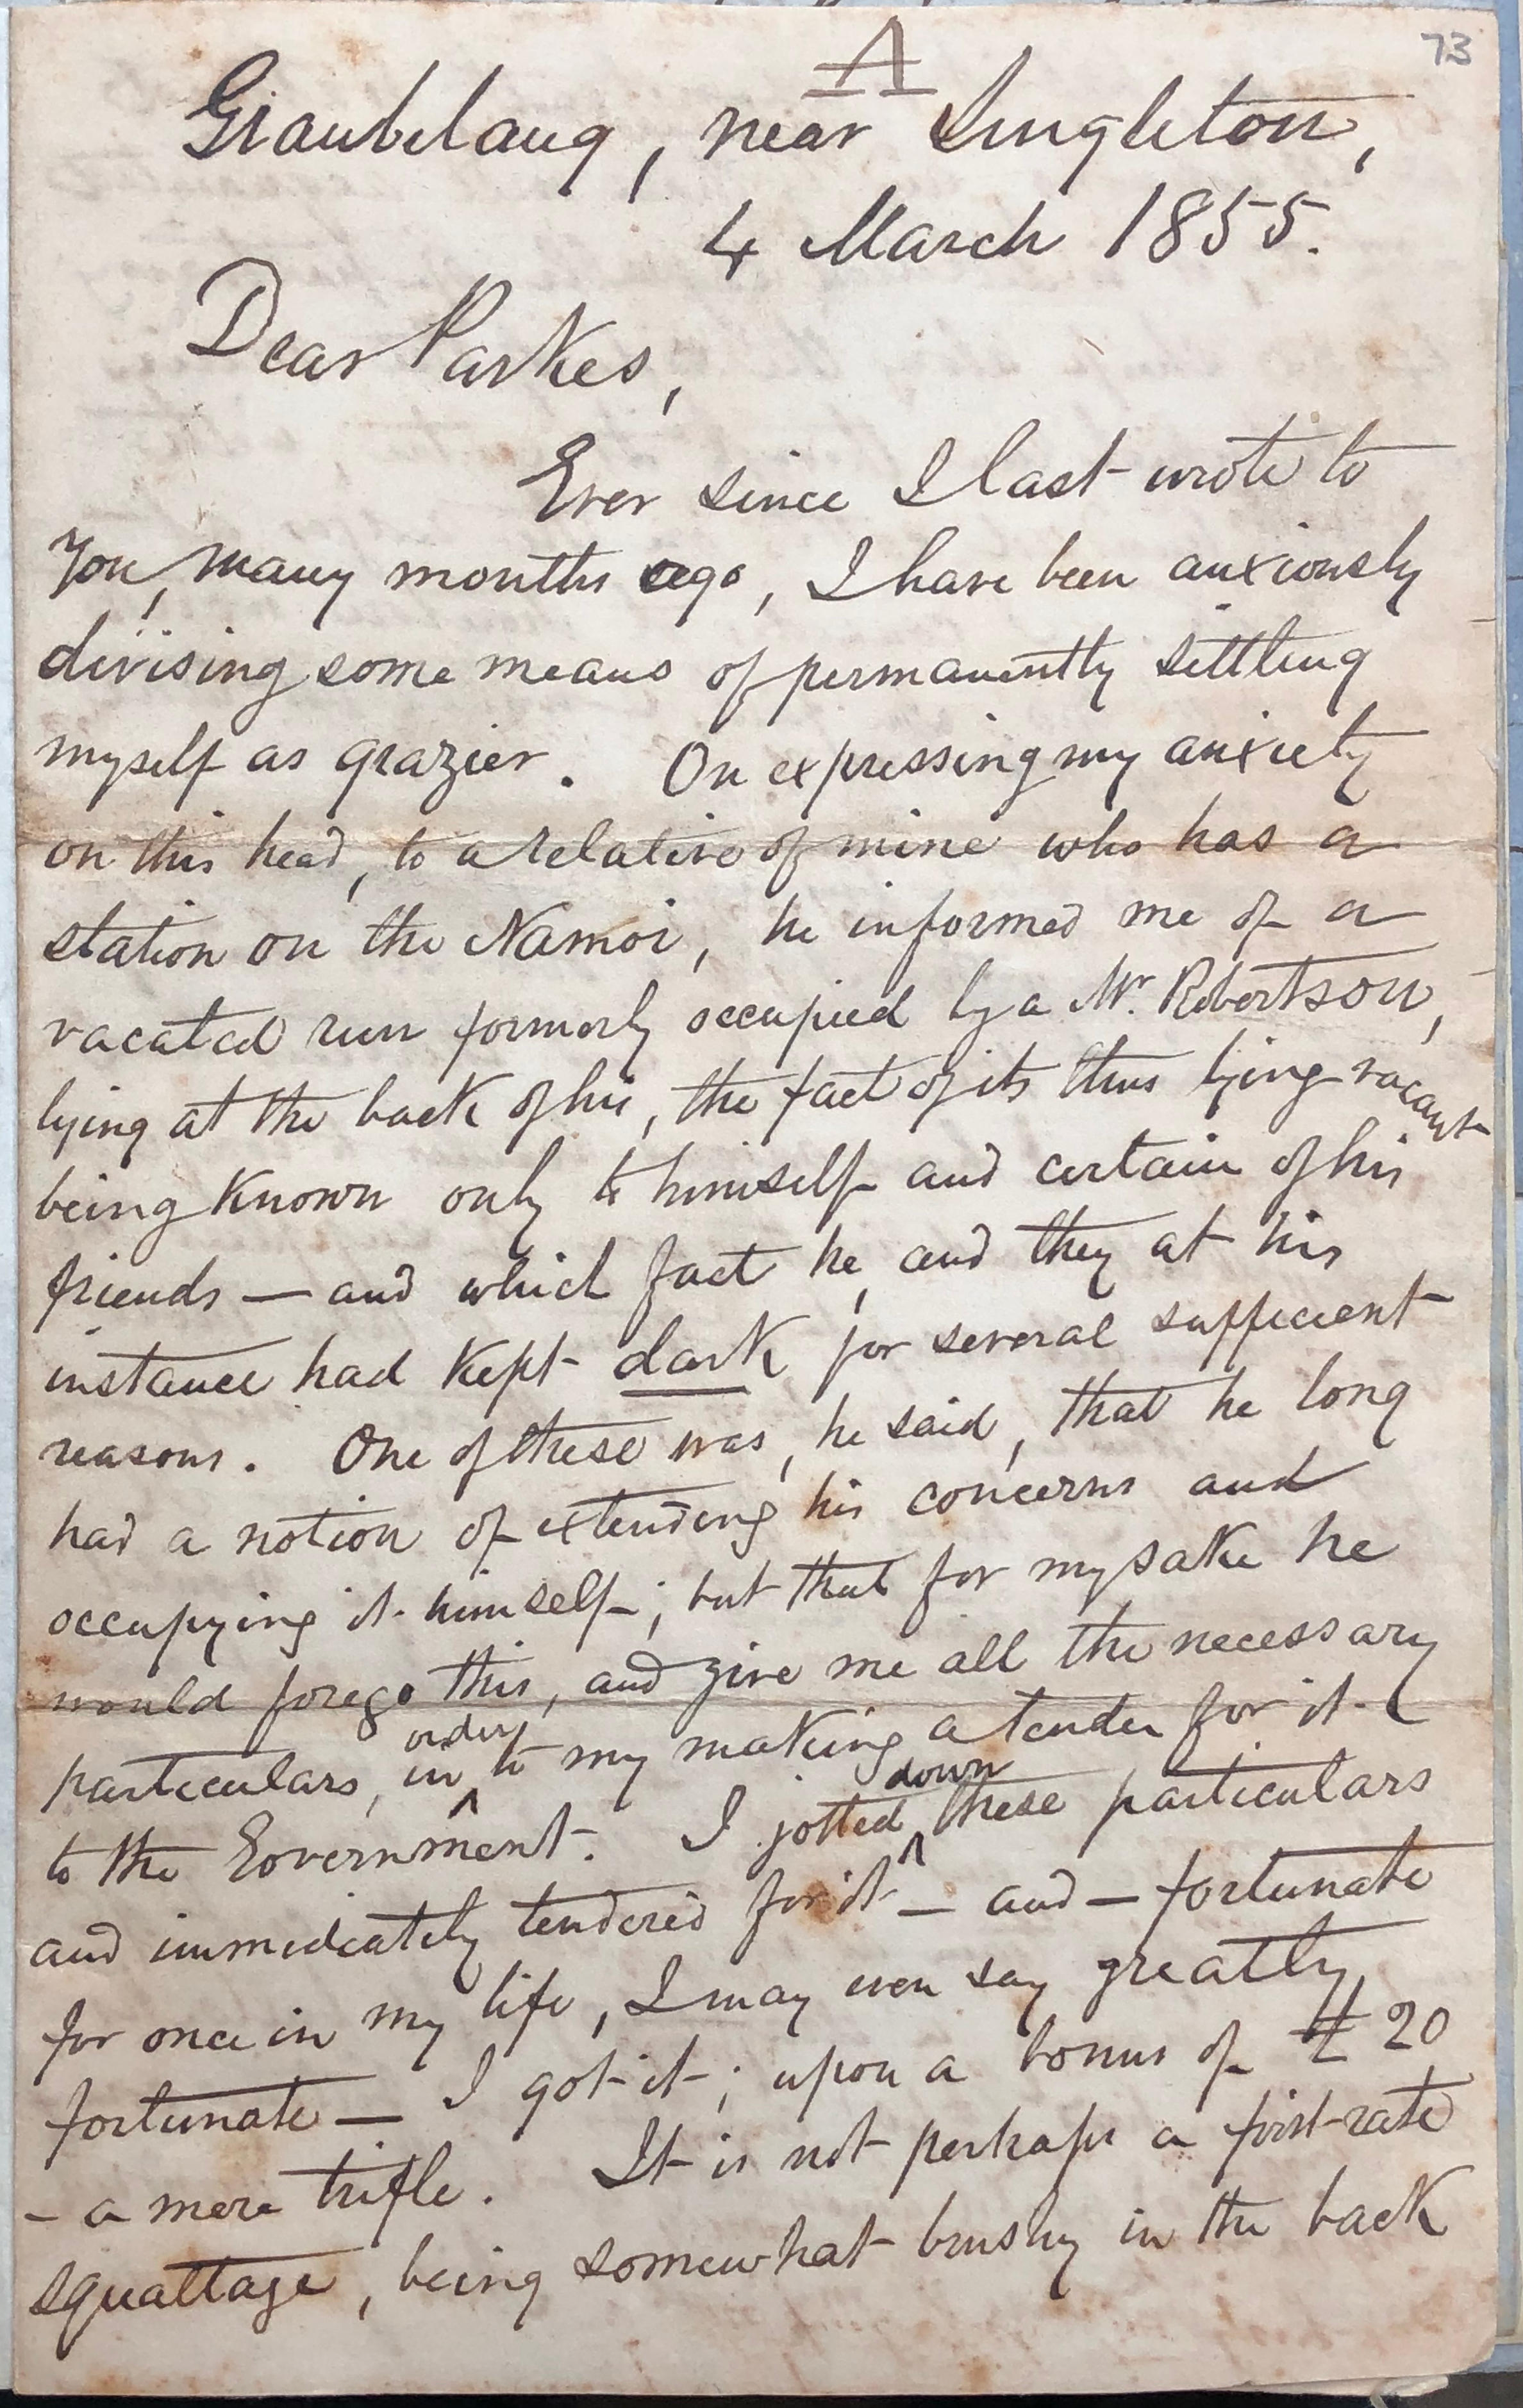 73
A
near Singleton,
4 March 1855.
Dear Parkes,
Ever since I last wrote to
you, many months ago, I have been anxiously
divising some means of permanently settling
myself as grazier. On expressing my anxiety
on this head, to a relative of mine who has a
station on the Namoi, he informed me of a
vacated run formerly occupied by a Mr. Robertson,
lying at the back of his, the fact of its thus lying vacant
being known only to himself and certain of his
friends — and which fact he, and they at his
instance had kept dark for several sufficient
reasons. One of these was, he said, that he long
had a notion of extending his concerns and
occupying it himself; but that for my sake he
would forego this, and give me all the necessary
particulars, in order to my making a tender for it
to the Government. I jotted down these particulars
and immediately tendered for it — and — fortunate
for once in my life, I may even say greatly
fortunate — I got it; upon a bonus of £20
- a mere trifle. It is not perhaps a first-rate
squattage, being somewhat brushy in the back